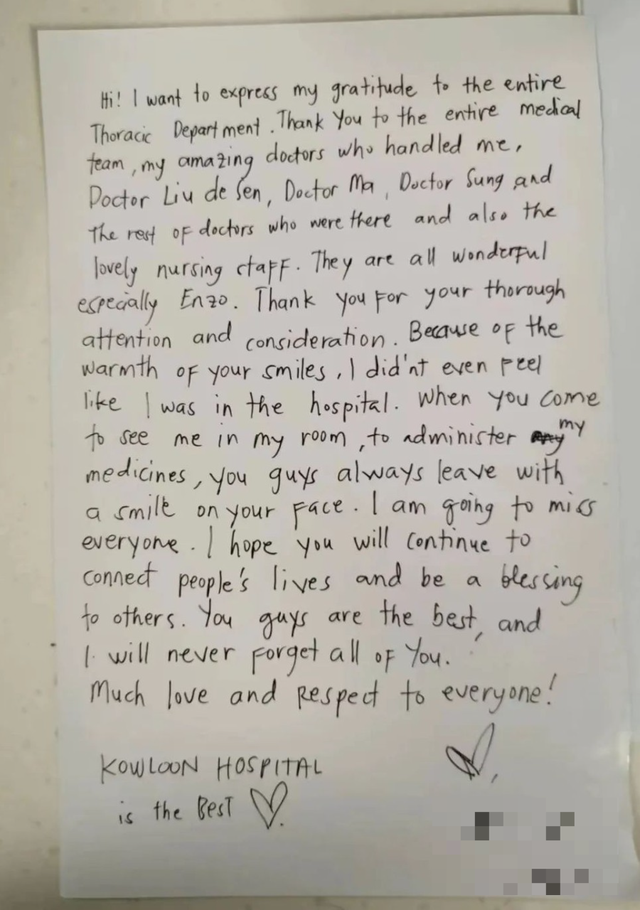 Hi! I want to express my gratitude to the entire
Thoracic Department. Thank You to the entire medical
team, my amazing doctors who handled me,
Doctor Liu de Sen, Doctor Ma, Doctor Sung and
the rest of doctors who were there and also the
lovely nursing staff. They are all wonderful
especially Enzo. Thank you for your thorough
attention and consideration. Because of the
warmth of your smiles, I did'nt even feel
like I was in the hospital. When you come
to see me in my room, to administer my
medicines, you guys always leave with
a smile on your face. I am going to miss
everyone. I hope you will continue to
connect people's lives and be a blessing
to others. You guys are the best, and
I will never forget all of You.
Much love and respect to everyone!
KOWLOON HOSPITAL
is the Best